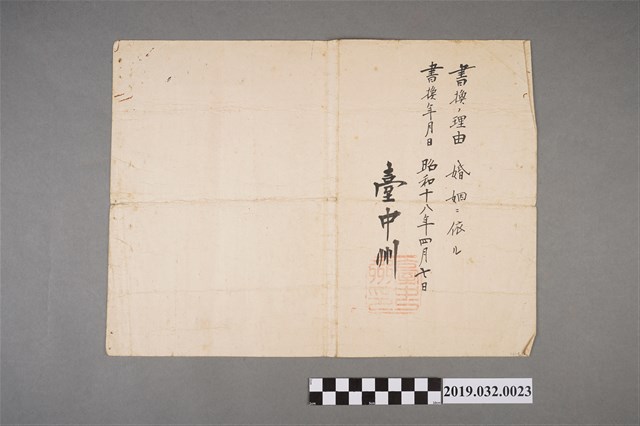 書換ノ理由 婚姻ニ依ル
書換年月日 昭和十八年四月七日
臺中州
2019.032.0023